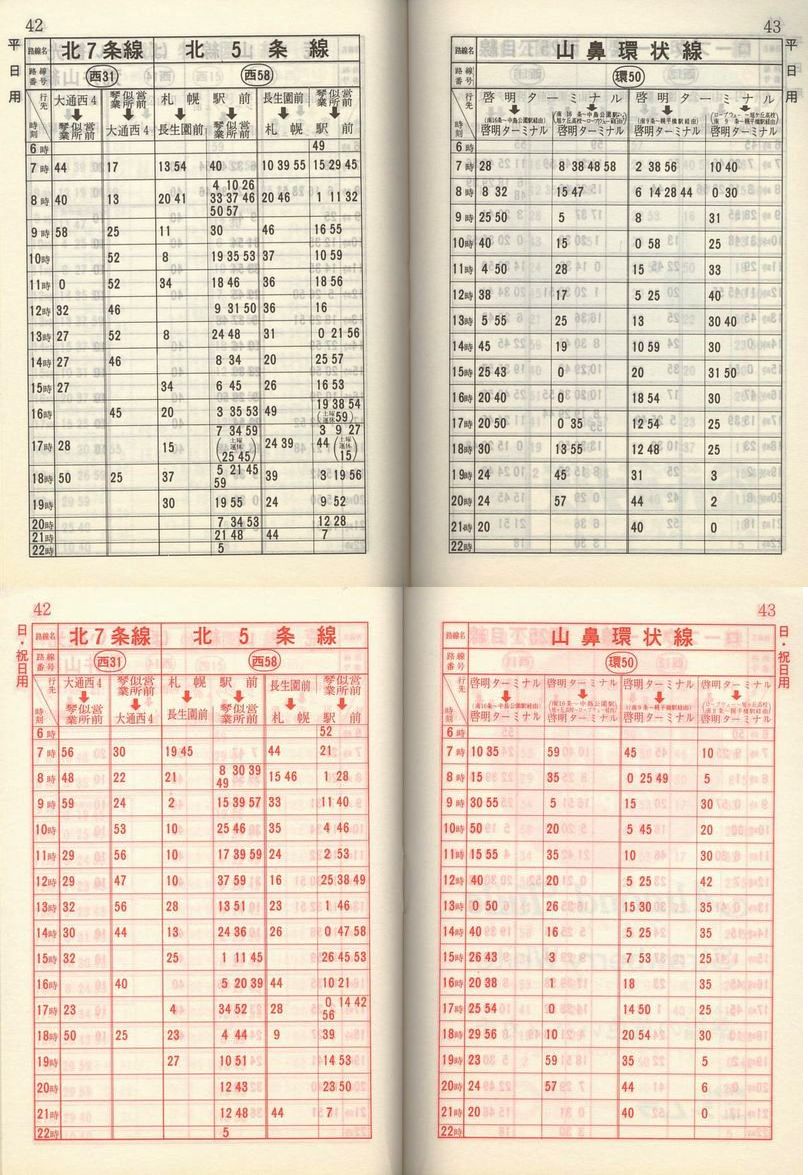 42
平日用
路線名 北7条線 北5条線
路線番号 西31 西58
行先 大通西4 琴似営業所前 札幌駅前 長生園前 琴似営業所前
時刻 琴似営業所前 大通西4 長生園前 琴似営業所前 札幌駅前
6時 49
7時 44 17 13 54 40 10 39 55 15 29 45
8時 40 13 20 41 4 10 26 33 37 46 50 57 20 46 1 11 32
9時 58 25 11 30 46 16 55
10時 52 8 19 35 53 37 10 59
11時 0 52 34 18 46 36 18 56
12時 32 46 9 31 50 36 16
13時 27 52 8 24 48 31 0 21 56
14時 27 46 8 34 20 25 57
15時 27 34 6 45 26 16 53
16時 45 20 3 35 53 49 19 38 54 (土曜運休59)
17時 28 15 7 34 59 (土曜運休25 45) 24 39 3 9 27 44 (土曜運休15)
18時 50 25 37 5 21 45 59 39 3 19 56
19時 30 19 55 24 9 52
20時 7 34 53 12 28
21時 21 48 44 7
22時 5
43
平日用
路線名 山鼻環状線
路線番号 環50
行先 啓明ターミナル 啓明ターミナル
時刻 啓明ターミナル 啓明ターミナル 啓明ターミナル 啓明ターミナル
6時
7時 28 8 38 48 58 2 38 56 10 40
8時 8 32 15 47 6 14 28 44 0 30
9時 25 50 5 8 31
10時 40 15 0 58 25
11時 4 50 28 15 33
12時 38 17 5 25 40
13時 5 55 25 13 30 40
14時 45 19 10 59 30
15時 25 43 0 20 31 50
16時 20 40 18 54 30
17時 20 50 0 35 12 54 25
18時 30 13 55 12 48 25
19時 24 45 31 3
20時 24 57 44 2
21時 20 40 0
22時
42
日・祝日用
路線名 北7条線 北5条線
路線番号 西31 西58
行先 大通西4 琴似営業所前 札幌駅前 長生園前 琴似営業所前
時刻 琴似営業所前 大通西4 長生園前 琴似営業所前 札幌駅前
6時 52
7時 56 30 19 45 44 21
8時 48 22 21 8 30 39 49 15 46 1 28
9時 59 24 2 15 39 57 33 11 40
10時 53 10 25 46 35 4 46
11時 29 56 10 17 39 59 24 2 53
12時 29 47 10 37 59 16 25 38 49
13時 32 56 28 13 51 23 1 46
14時 30 44 13 24 36 26 0 47 58
15時 32 25 1 11 45 26 45 53
16時 40 5 20 39 44 10 21
17時 23 4 34 52 28 0 14 42 56
18時 50 25 23 4 44 9 39
19時 27 10 51 14 53
20時 12 43 23 50
21時 12 48 44 7
22時 5
43
日・祝日用
路線名 山鼻環状線
路線番号 環50
行先 啓明ターミナル 啓明ターミナル 啓明ターミナル 啓明ターミナル
時刻 啓明ターミナル 啓明ターミナル 啓明ターミナル 啓明ターミナル
6時
7時 10 35 59 45 10
8時 15 35 0 25 49 5
9時 30 55 5 15 30
10時 50 20 5 45 20
11時 15 55 35 10 30
12時 40 20 5 25 42
13時 0 50 16 15 30 35
14時 40 16 5 25 35
15時 26 43 3 7 53 25
16時 20 38 1 18 35
17時 25 54 0 14 50 25
18時 29 56 10 20 54 30
19時 23 59 35 5
20時 24 57 44 6
21時 20 40 0
22時